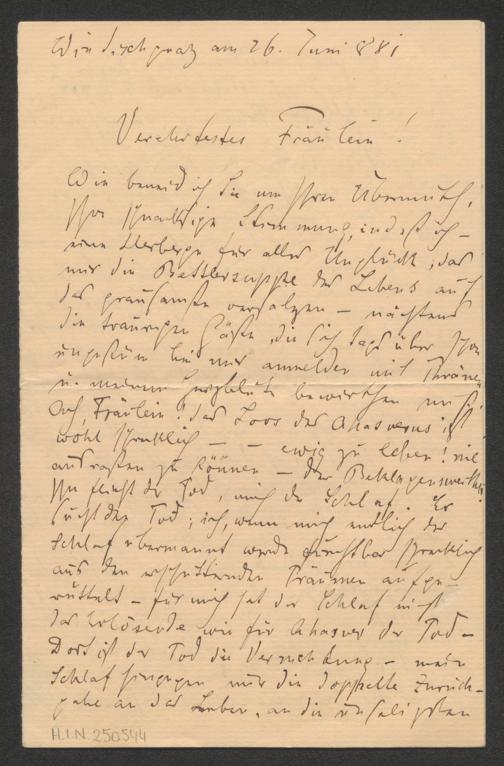 Windischgraz am 26. Juni 881
Verehrtestes Fräulein!
Wie beneid ich Sie um Ihren Übermuth,
Ihre schnackige Stimmung, indeß ich –
eine Herberge für alles Unglück, das
mir die Bettlersuppe des Lebens auch
das grausamste versalzen – nächtens
die traurigen Gäste, die sich tags über schon
ungestüm bei mir anmelden mit Thränen
u. meinem Herzblute bewirthen muß.
Ach, Fräulein! das Loos des Ahasverus ist
wohl schrecklich – – ewig zu leben! nie
ausrasten zu können – der Beklagenswerthe!
Ihn flieht der Tod, mich der Schlaf. Er
sucht den Tod; ich, wenn mich endlich der
Schlaf übermannt werde furchtbar schrecklich
aus den erschütternden Träumen aufge-
rüttelt – für mich hat der Schlaf nicht
das Erlösende wie für Ahasver der Tod –
Dort ist der Tod die Vernichtung – mein
Schlaf hingegen nur die doppelte Zurück-
gabe an das Leben, an die unseligsten
H.I.N. 250544